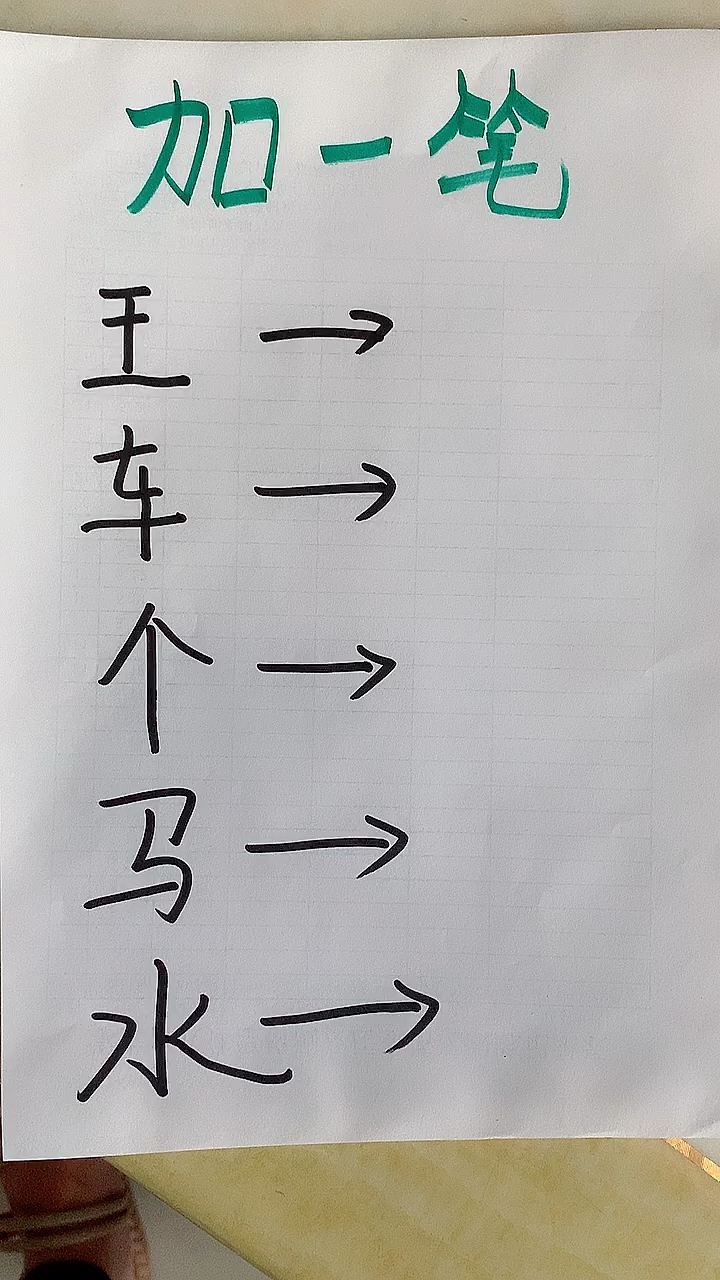 加一笔
王 →
车 →
个 →
马 →
水 →